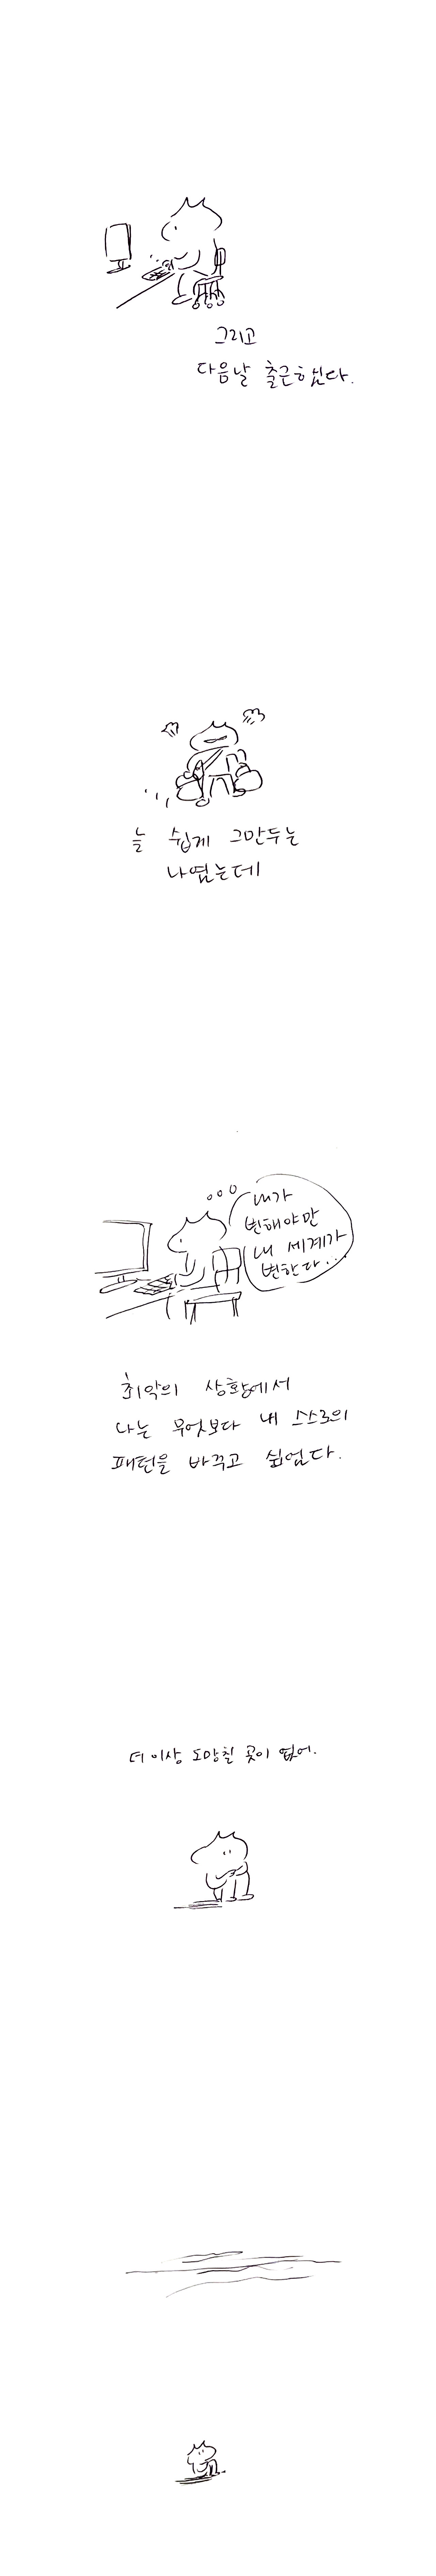 그리고
다음날 출근했다.
늘 쉽게 그만두는
나였는데
내가
변해야만
내 세계가
변한다...
최악의 상황에서
나는 무엇보다 내 스스로의
패턴을 바꾸고 싶었다.
더 이상 도망칠 곳이 없어.